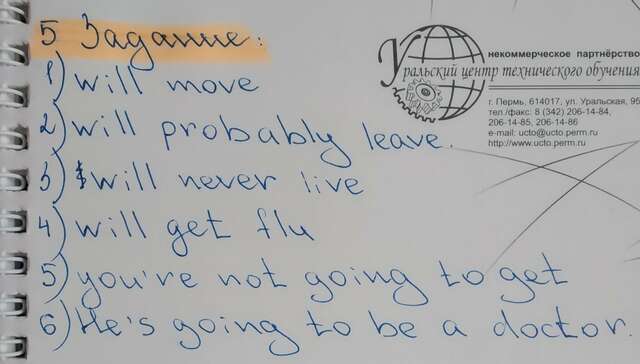 5 Задание:
1) will move
2) will probably leave.
3) will never live
4) will get flu
5) you're not going to get
6) He's going to be a doctor.
некоммерческое партнёрство
Уральский центр технического обучения
г. Пермь, 614017, ул. Уральская, 95
тел./факс: 8 (342) 206-14-84,
206-14-85, 206-14-86
e-mail: ucto@ucto.perm.ru
http://www.ucto.perm.ru